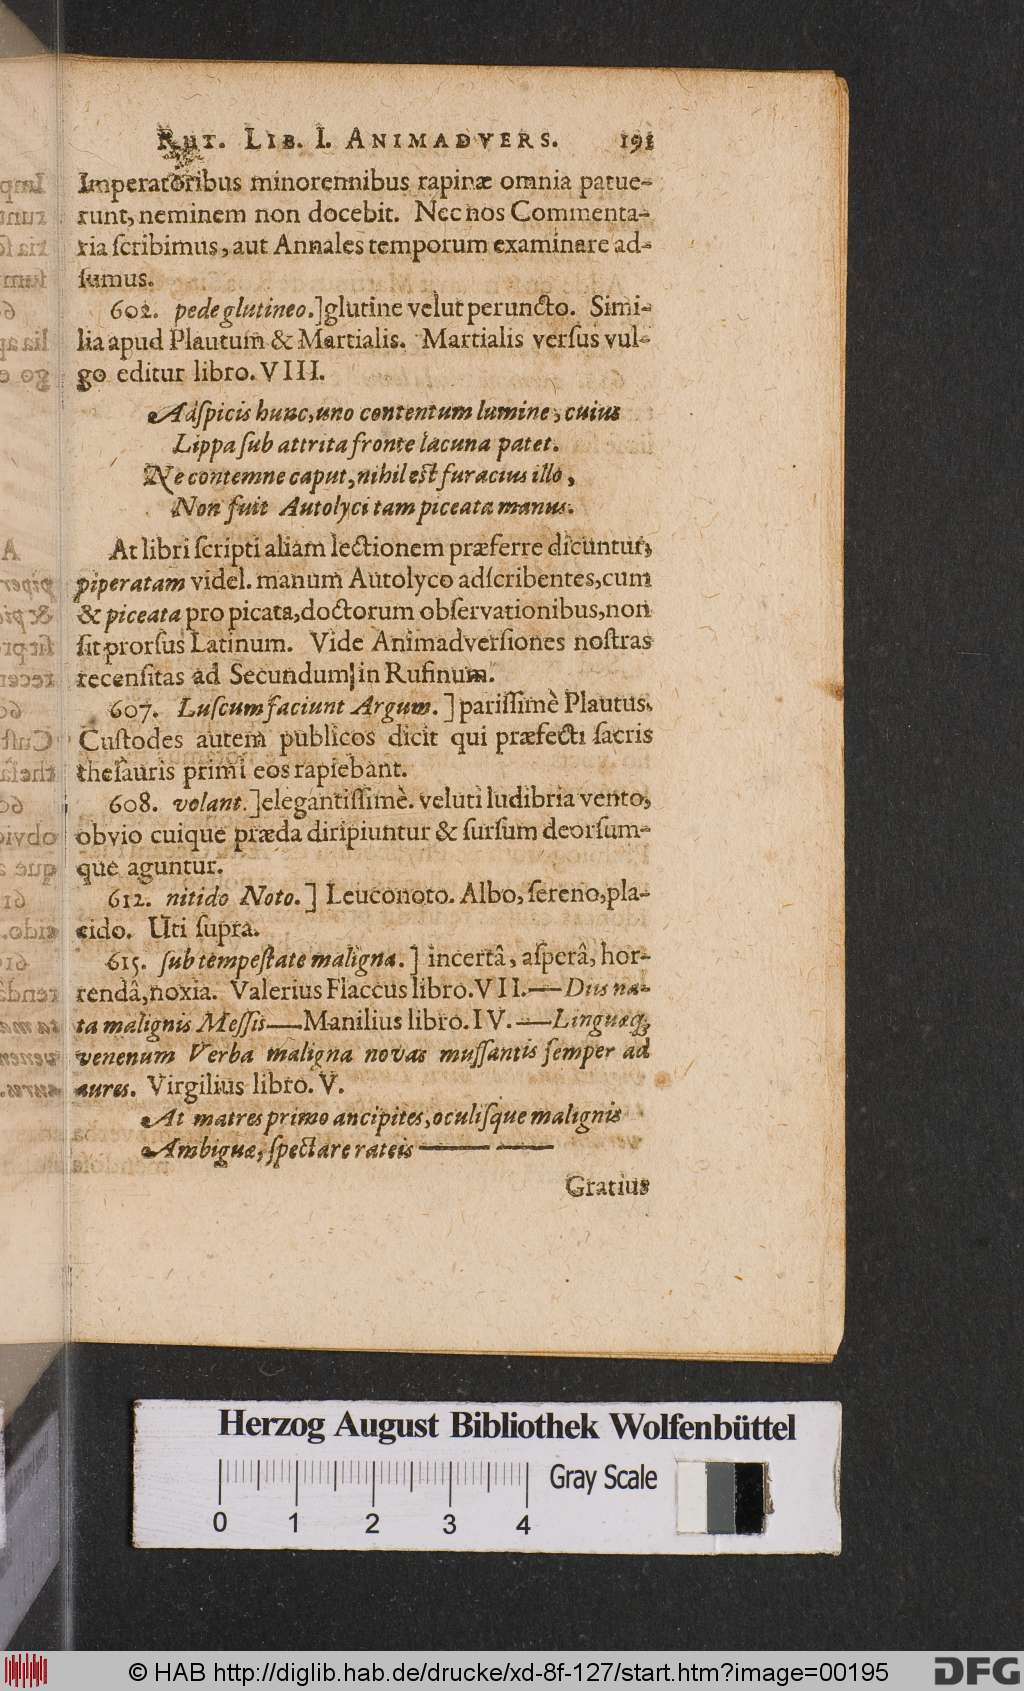 RUT. LIB. I. ANIMADVERS. 191
Imperatoribus minorennibus rapinæ omnia patue-
runt, neminem non docebit. Nec nos Commenta-
ria ſcribimus, aut Annales temporum examinare ad-
ſumus.
602. pede glutineo.] glutine velut peruncto. Simi-
lia apud Plautum & Martialis. Martialis verſus vul-
go editur libro. VIII.
Adſpicis hunc, uno contentum lumine, cuius
Lippa ſub attrita fronte lacuna patet.
Ne contemne caput, nihil eſt furacius illo,
Non fuit Autolyci tam piceata manus.
At libri ſcripti aliam lectionem præferre dicuntur,
piperatam videl. manum Autolyco adſcribentes, cum
& piceata pro picata, doctorum obſervationibus, non
ſit prorſus Latinum. Vide Animadverſiones noſtras
recenſitas ad Secundum in Rufinum.
607. Luſcum faciunt Argum.] pariſſimè Plautus.
Cuſtodes autem publicos dicit qui præfecti ſacris
theſauris primi eos rapiebant.
608. volant.] elegantiſſimè. veluti ludibria vento,
obvio cuique præda diripiuntur & ſurſum deorſum-
que aguntur.
612. nitido Noto.] Leuconoto. Albo, ſereno, pla-
cido. Uti ſupra.
615. ſub tempeſtate maligna.] incertâ, aſperâ, hor-
rendâ, noxia. Valerius Flaccus libro. VII.—Diis na-
ta malignis Meſſis—Manilius libro. IV.—Linguæq;
venenum Verba maligna novas muſſantis ſemper ad
aures. Virgilius libro. V.
At matres primo ancipites, oculiſque malignis
Ambiguæ, ſpectare rateis — —
Gratius
Herzog August Bibliothek Wolfenbüttel
Gray Scale
0 1 2 3 4
© HAB http://diglib.hab.de/drucke/xd-8f-127/start.htm?image=00195
DFG